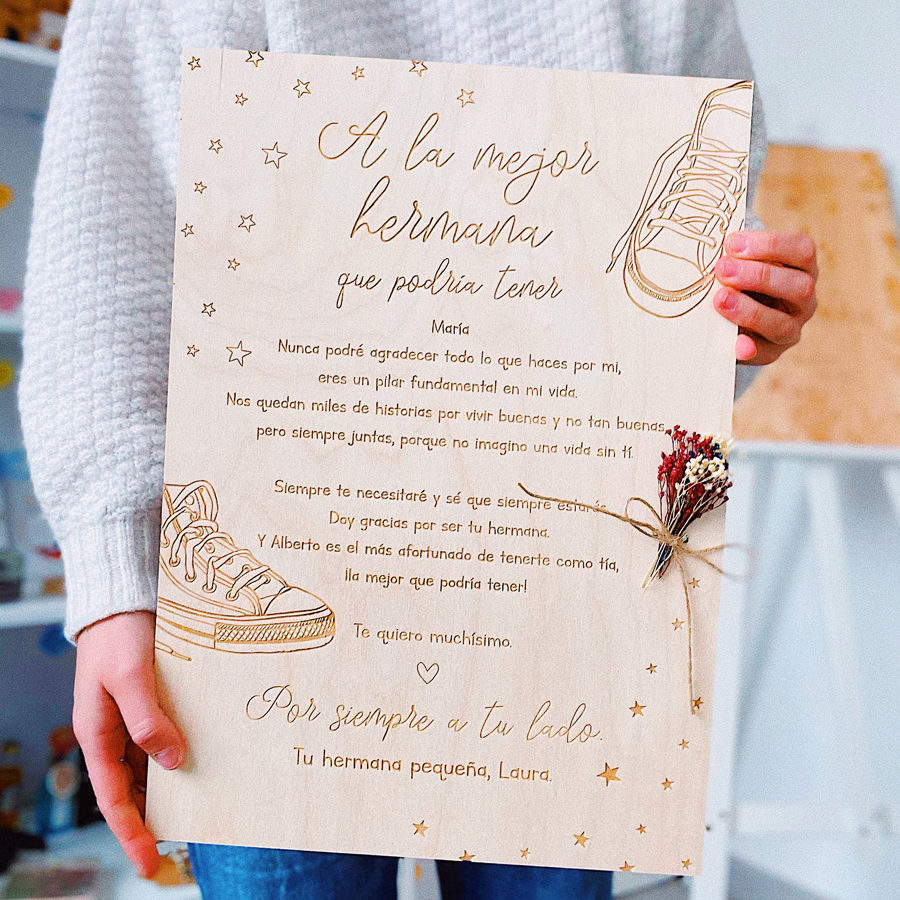 A la mejor
hermana
que podría tener
María
Nunca podré agradecer todo lo que haces por mi,
eres un pilar fundamental en mi vida.
Nos quedan miles de historias por vivir buenas y no tan buenas,
pero siempre juntas, porque no imagino una vida sin tí.
Siempre te necesitaré y sé que siempre estarás
Doy gracias por ser tu hermana.
Y Alberto es el más afortunado de tenerte como tía,
¡la mejor que podría tener!
Te quiero muchísimo.
Por siempre a tu lado.
Tu hermana pequeña, Laura.